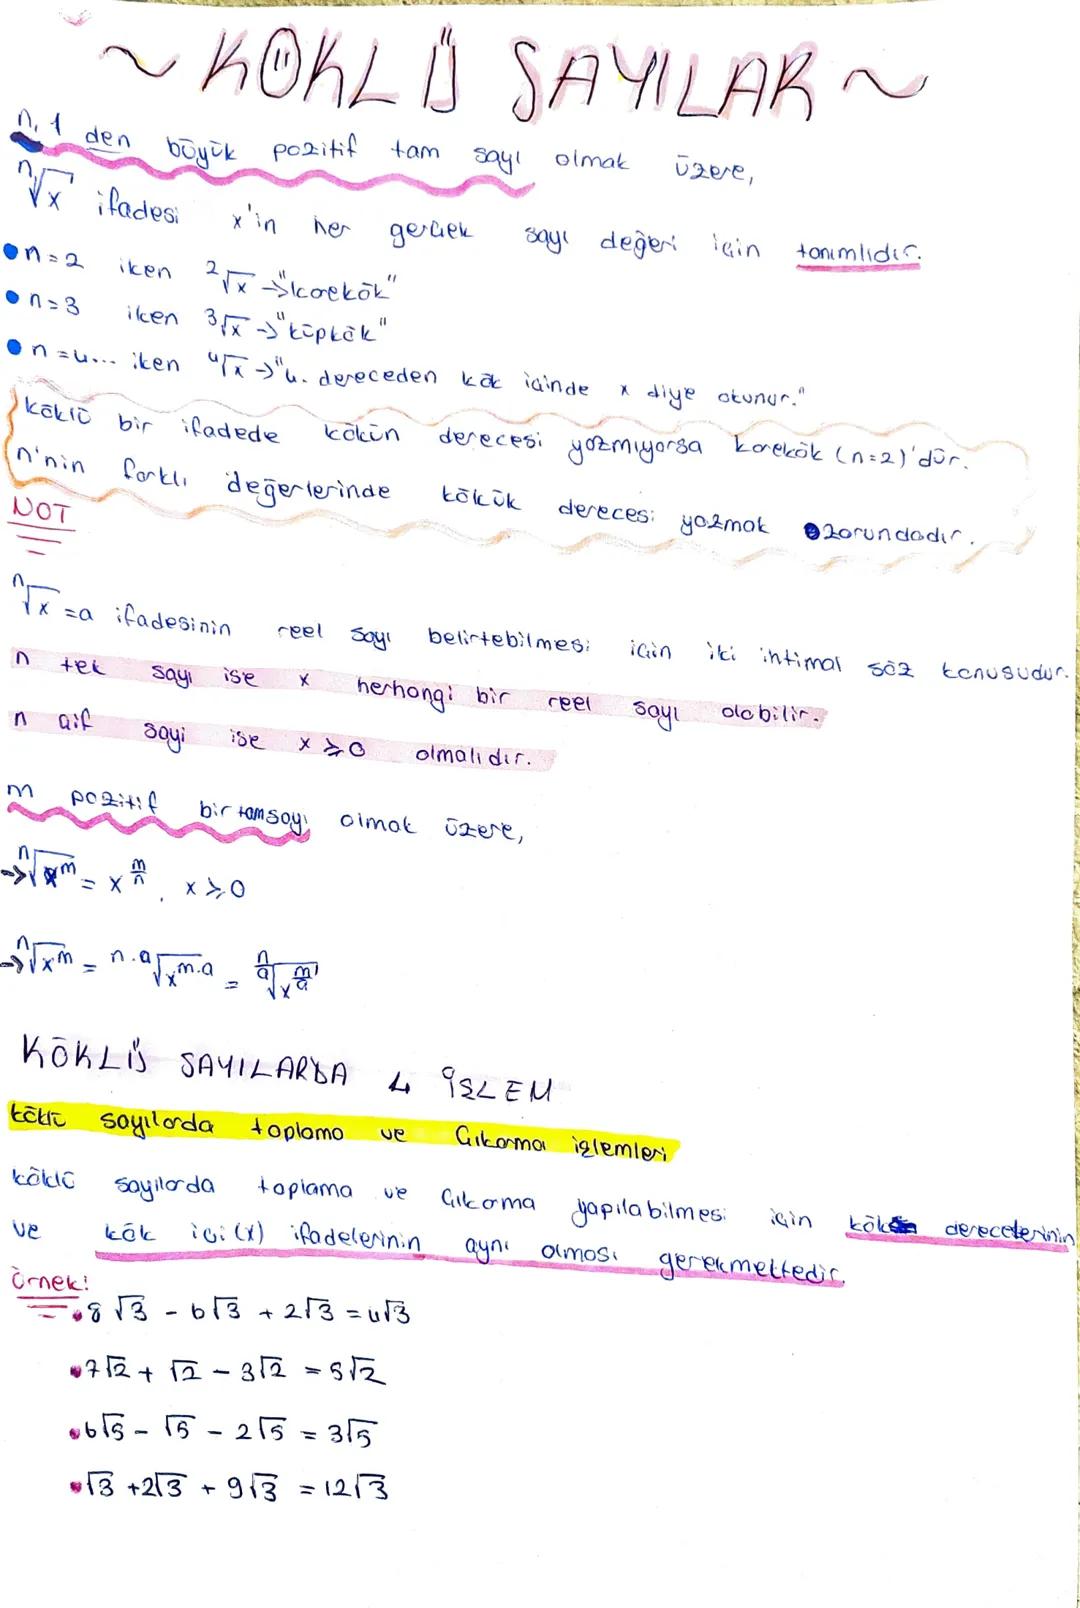 ~ KÖKLÜ SAYILAR ~
n, 1 den büyük pozitif tam sayı olmak üzere,
ⁿ√x ifadesi x'in her gerçek sayı değeri için tanımlıdır.
• n=2 iken ²√x → "karekök"
• n=3 iken ³√x → "küpkök"
• n=4... iken ⁴√x → "4. dereceden kök içinde x diye okunur."
köklü bir ifadede kökün derecesi yazmıyorsa karekök (n=2)'dür.
n'nin farklı değerlerinde kökük derecesi yazmak zorundadır.
NOT
ⁿ√x =a ifadesinin reel sayı belirtebilmesi için iki ihtimal söz konusudur.
n tek sayı ise x herhangi bir reel sayı olabilir.
n çif sayi ise x ≥ 0 olmalıdır.
m pozitif bir tamsayı olmak üzere,
→ ⁿ√x^m = x^(m/n), x ≥ 0
→ ⁿ√x^m = n·a√x^m·a = n/a√x^(m/a)
KÖKLÜ SAYILARDA 4 İŞLEM
köklü sayılarda toplama ve Çıkarma işlemleri
köklü sayılarda toplama ve Çıkarma yapılabilmesi için kök derecelerinin
ve kök içi (x) ifadelerinin aynı olması gerekmektedir.
Örnek!
• 8√3 - 6√3 + 2√3 = 4√3
• 7√2 + √2 - 3√2 = 5√2
• 6√5 - √5 - 2√5 = 3√5
• √3 + 2√3 + 9√3 = 12√3